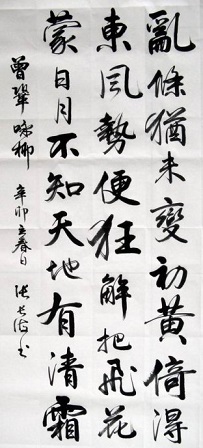 亂條猶未變初黃倚得
東風勢便狂解把飛花
蒙日月不知天地有清霜
曾鞏咏柳 辛卯立春日